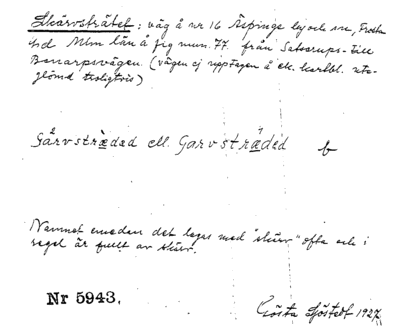 Skärvsträtet: väg å nr 16 Äspinge by och sn, Frosta
hd Mlm län å fig mun. 77. från Satserups- till
Bonarpsvägen. (vägen ej upptagen å ek. kartbl. ute-
glömd troligtvis)
Gårvsträded ell. Garvsträded b
Namnet emedan det lagas med "skärv" ofta och i
regel är fullt av skärv.
Nr 5943.
Gösta Sjöstedt 1927.